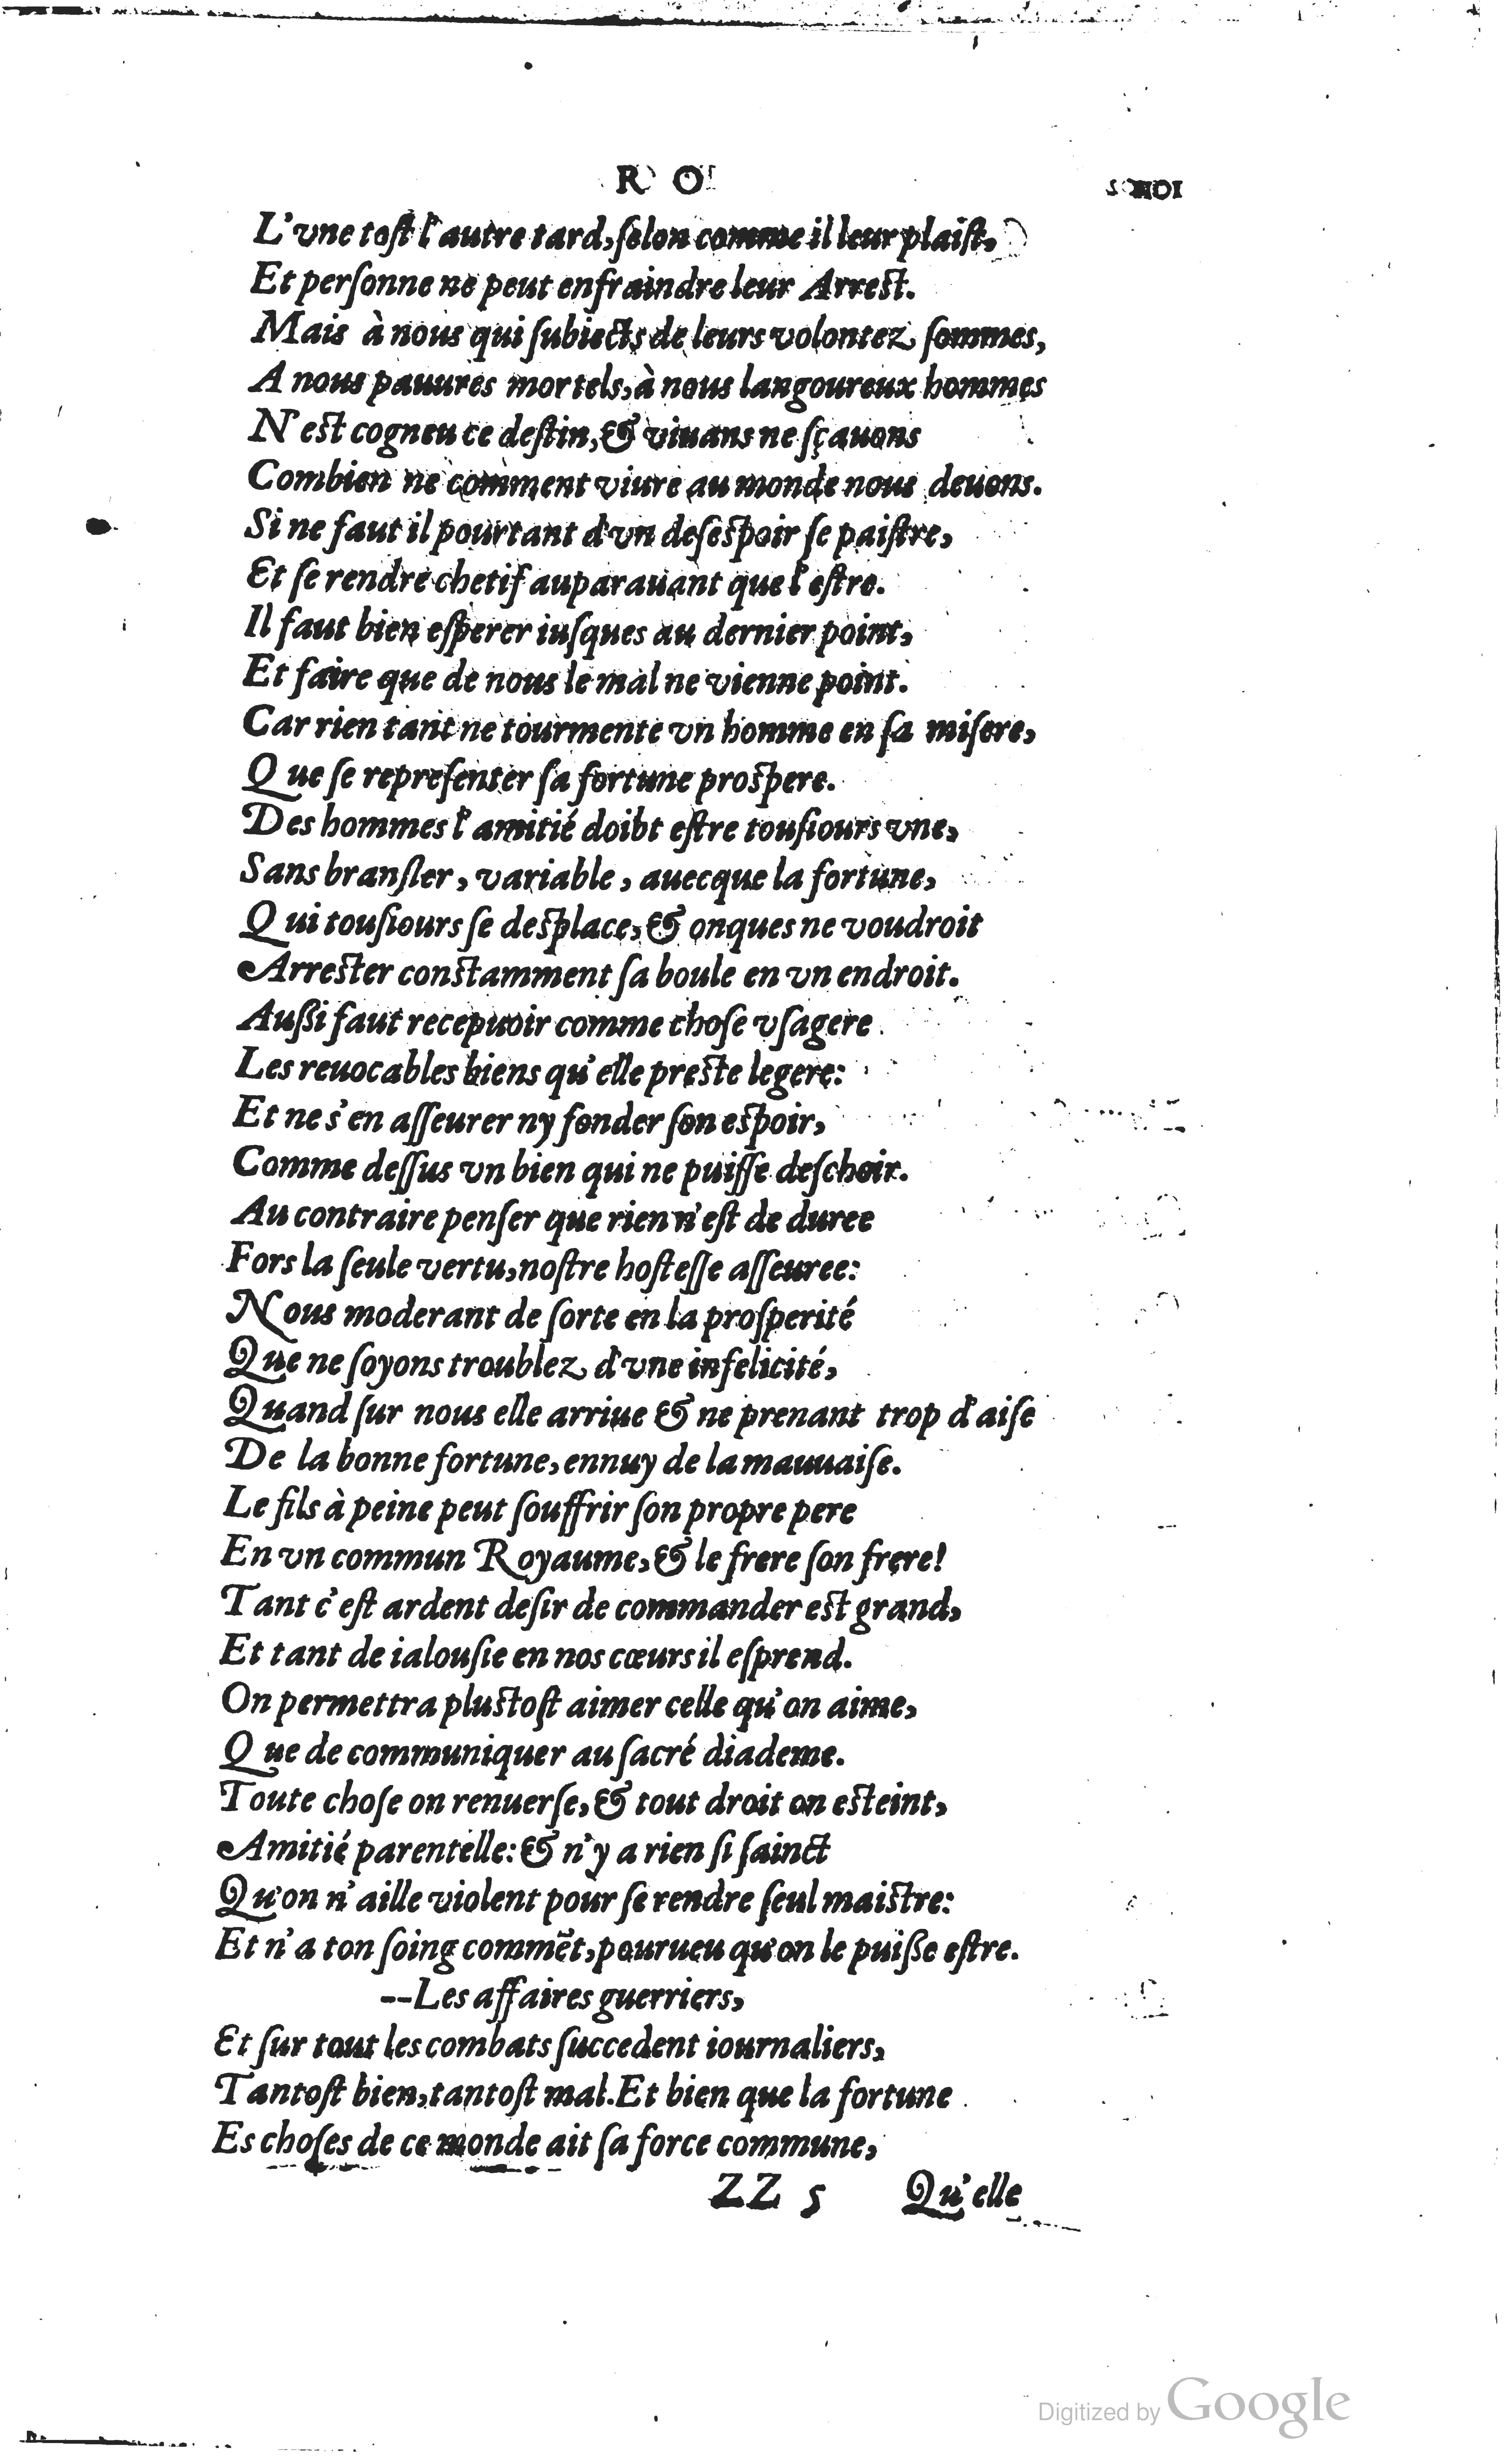 R O
L'vne tost l'autre tard, ſelon comme il leur plaiſt,
Et perſonne ne peut enfraindre leur Arreſt.
Mais à nous qui ſubiects de leurs volontez ſommes,
A nous pauures mortels, à nous langoureux hommes
N'eſt cogneu ce deſtin, & viuans ne ſçauons
Combien ne comment viure au monde nous deuons.
Si ne faut il pourtant d'vn deſeſpoir ſe paiſtre,
Et ſe rendre chetif auparauant que l'eſtre.
Il faut bien eſperer iuſques au dernier point,
Et faire que de nous le mal ne vienne point.
Car rien tant ne tourmente vn homme en ſa miſere,
Que ſe repreſenter ſa fortune proſpere.
Des hommes l'amitié doibt eſtre touſiours vne,
Sans branſler, variable, auecque la fortune,
Qui touſiours ſe deſplace, & onques ne voudroit
Arreſter conſtamment ſa boule en vn endroit.
Auſſi faut recepuoir comme choſe vſagere
Les reuocables biens qu'elle preſte legere:
Et ne s'en aſſeurer ny fonder ſon eſpoir,
Comme deſſus vn bien qui ne puiſſe deſchoir.
Au contraire penſer que rien n'eſt de duree
Fors la ſeule vertu, noſtre hoſteſſe aſſeuree:
Nous moderant de ſorte en la proſperité
Que ne ſoyons troublez d'vne infelicité,
Quand ſur nous elle arriue & ne prenant trop d'aiſe
De la bonne fortune, ennuy de la mauuaiſe.
Le fils à peine peut ſouffrir ſon propre pere
En vn commun Royaume, & le frere ſon frere!
Tant c'eſt ardent deſir de commander eſt grand,
Et tant de ialouſie en nos cœurs il eſprend.
On permettra pluſtoſt aimer celle qu'on aime,
Que de communiquer au ſacré diademe.
Toute choſe on renuerſe, & tout droit on eſteint,
Amitié parentelle: & n'y a rien ſi ſainct
Qu'on n'aille violent pour ſe rendre ſeul maiſtre:
Et n'a ton ſoing commẽt, pourueu qu'on le puiſſe eſtre.
--Les affaires guerriers,
Et ſur tout les combats ſuccedent iournaliers,
Tantoſt bien, tantoſt mal. Et bien que la fortune
Es choſes de ce monde ait ſa force commune,
ZZ 5 Qu'elle
Digitized by Google